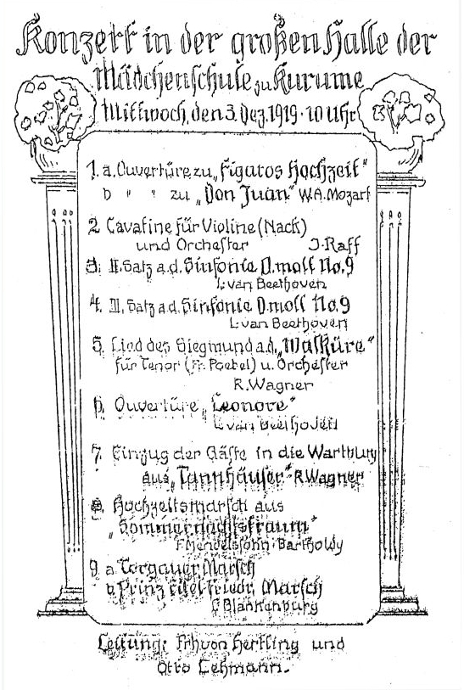 Konzert in der großen Halle der
Mädchenschule zu Kurume
Mittwoch, den 3. Dez. 1919 · 10 Uhr
1. a. Ouvertüre zu „Figaros Hochzeit"
b " " zu „Don Juan" W.A. Mozart
2 Cavatine für Violine (Nack)
und Orchester J. Raff
3. II. Satz a.d. Sinfonie D.moll No. 9
L. van Beethoven
4. III. Satz a.d. Sinfonie D.moll No. 9
L. van Beethoven
5. Lied des Siegmund a.d. „Walküre"
für Tenor (Fr. Poebel) u. Orchester
R. Wagner
6. Ouvertüre „Leonore"
L. van Beethoven
7. Einzug der Gäste in die Wartburg
aus „Tannhäuser" R. Wagner
8. Hochzeitsmarsch aus
„Sommernachtstraum"
F. Mendelssohn-Bartholdy
9. a Torgauer Marsch
b Prinz Eitel Friedr. Marsch
Blankenburg
Leitung: Frh von Hertling und
Otto Lehmann.